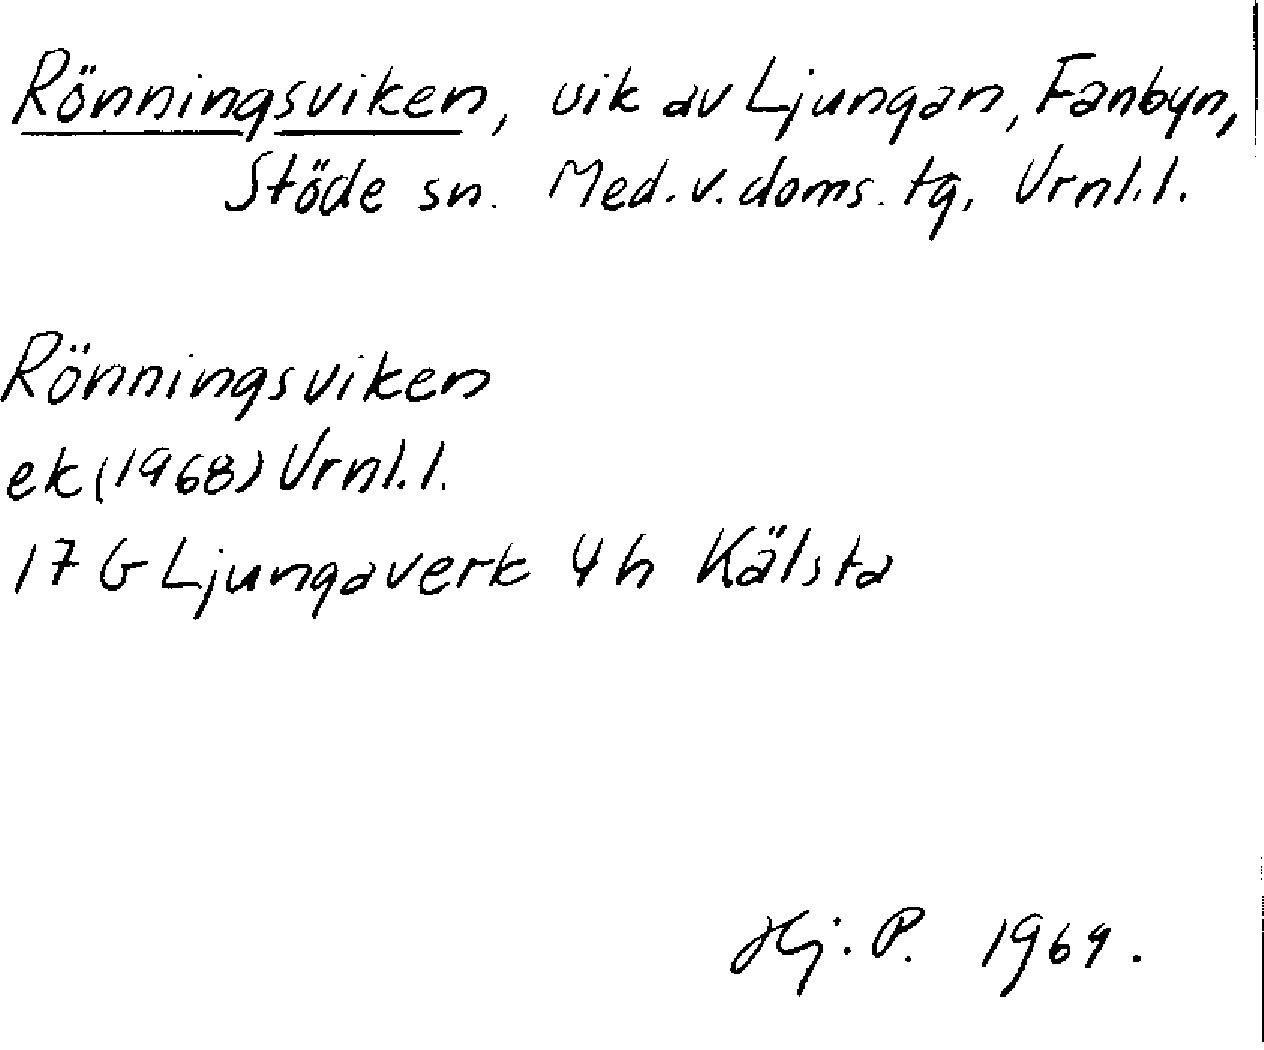 Rönningsviken, vik av Ljungan, Fanbyn,
Stöde sn. Med. v. doms. tg, Vrnl. l.
Rönningsviken
ek (1968) Vrnl. l.
17 G Ljungaverk 4 h Kälsta
Hj. P. 1969.